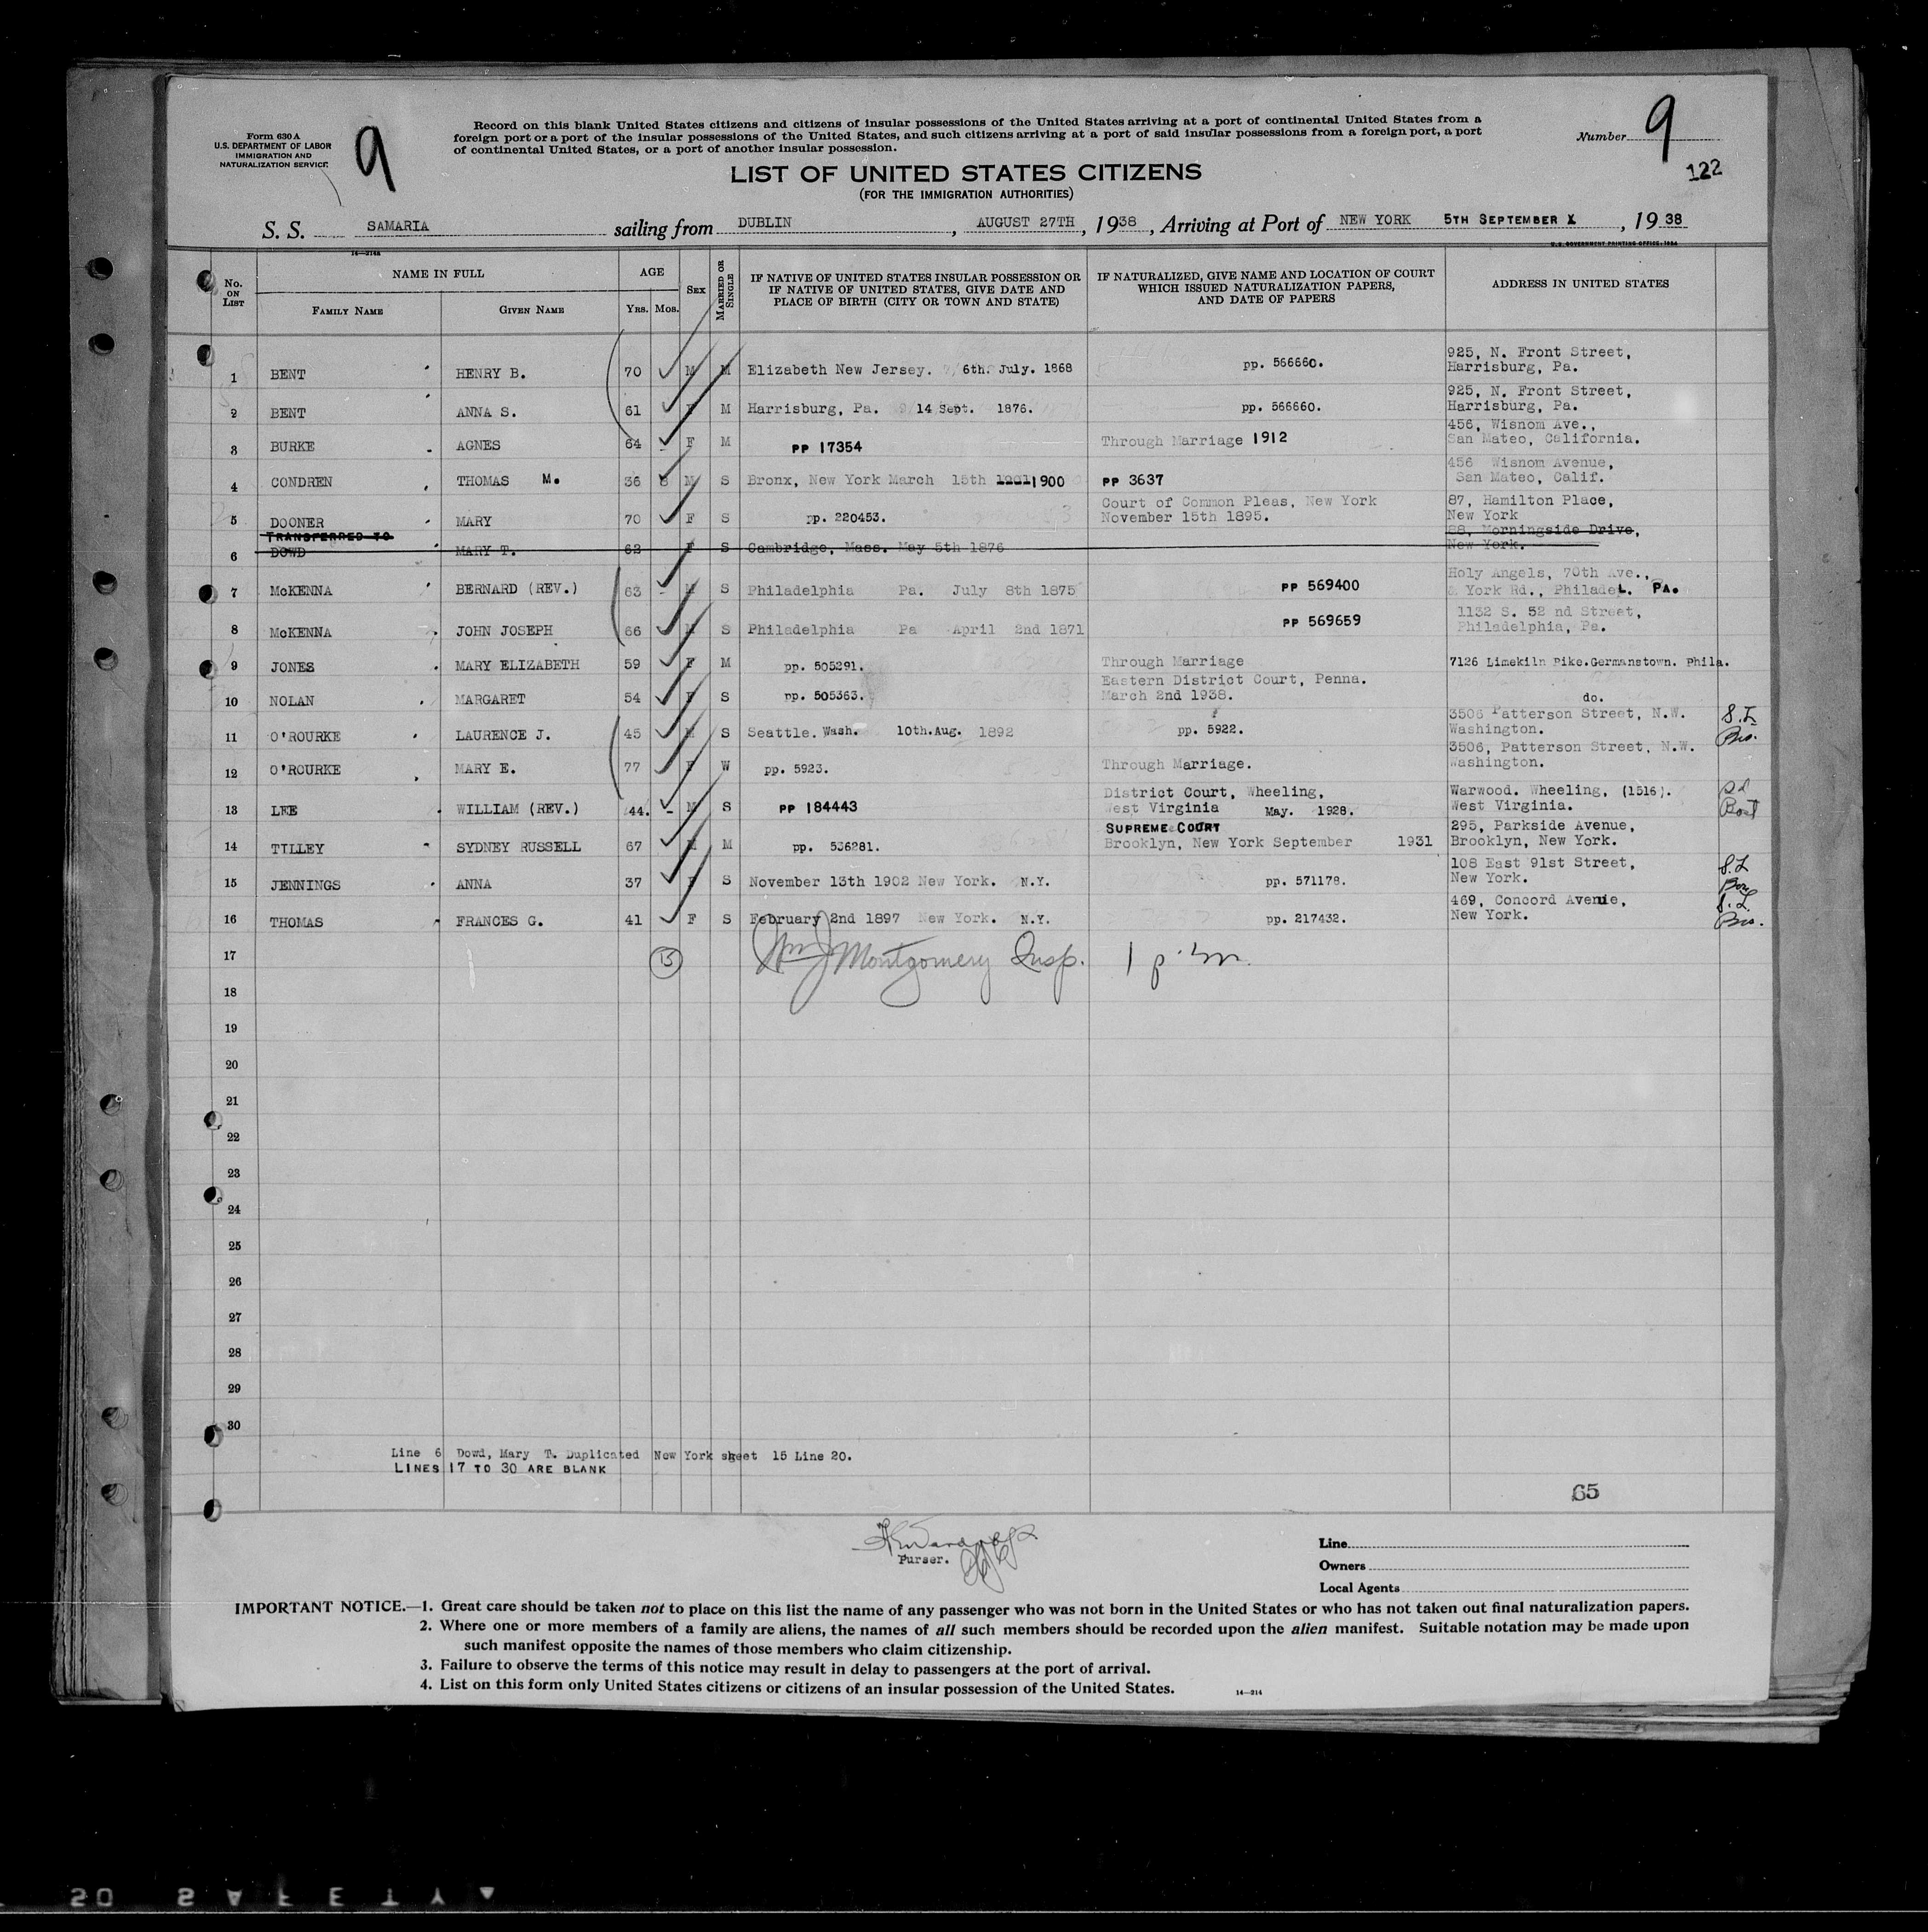 Form 630 A
U.S. DEPARTMENT OF LABOR
IMMIGRATION AND
NATURALIZATION SERVICE
9
Record on this blank United States citizens and citizens of insular possessions of the United States arriving at a port of continental United States from a
foreign port or a port of the insular possessions of the United States, and such citizens arriving at a port of said insular possessions from a foreign port, a port
of continental United States, or a port of another insular possession.
Number 9
122
LIST OF UNITED STATES CITIZENS
(FOR THE IMMIGRATION AUTHORITIES)
S. S. SAMARIA sailing from DUBLIN, AUGUST 27TH, 1938, Arriving at Port of NEW YORK 5TH SEPTEMBER X, 1938
14—214a
U.S. GOVERNMENT PRINTING OFFICE: 1934
No. ON LIST
NAME IN FULL
FAMILY NAME
GIVEN NAME
AGE
YRS. MOS.
SEX
MARRIED OR SINGLE
IF NATIVE OF UNITED STATES INSULAR POSSESSION OR
IF NATIVE OF UNITED STATES, GIVE DATE AND
PLACE OF BIRTH (CITY OR TOWN AND STATE)
IF NATURALIZED, GIVE NAME AND LOCATION OF COURT
WHICH ISSUED NATURALIZATION PAPERS,
AND DATE OF PAPERS
ADDRESS IN UNITED STATES
925, N. Front Street,
1 BENT HENRY B. 70 M M Elizabeth New Jersey. 6th. July. 1868 pp. 566660. Harrisburg, Pa.
925, N. Front Street,
2 BENT ANNA S. 61 F M Harrisburg, Pa. 14 Sept. 1876. pp. 566660. Harrisburg, Pa.
456, Wisnom Ave.,
3 BURKE AGNES 64 - F M PP 17354 Through Marriage 1912 San Mateo, California.
456 Wisnom Avenue,
4 CONDREN THOMAS M. 36 M S Bronx, New York March 15th 1901 1900 PP 3637 San Mateo, Calif.
Court of Common Pleas, New York 87, Hamilton Place,
5 DOONER MARY 70 F S pp. 220453. November 15th 1895. New York
TRANSFERRED TO 88, Morningside Drive,
6 DOWD MARY T. 62 F S Cambridge, Mass. May 5th 1876 New York.
Holy Angels, 70th Ave.,
7 McKENNA BERNARD (REV.) 63 - M S Philadelphia Pa. July 8th 1875 PP 569400 & York Rd., Philadel. PA.
1132 S. 52 nd Street,
8 McKENNA JOHN JOSEPH 66 M S Philadelphia Pa April 2nd 1871 PP 569659 Philadelphia, Pa.
9 JONES MARY ELIZABETH 59 F M pp. 505291. Through Marriage 7126 Limekiln Pike.Germanstown. Phila.
Eastern District Court, Penna.
10 NOLAN MARGARET 54 F S pp. 505363. March 2nd 1938. do.
3506 Patterson Street, N.W.
11 O'ROURKE LAURENCE J. 45 M S Seattle. Wash. 10th.Aug. 1892 pp. 5922. Washington. S.I.
3506, Patterson Street, N.W.
12 O'ROURKE MARY E. 77 F W pp. 5923. Through Marriage. Washington.
District Court, Wheeling, Warwood. Wheeling, (1516).
13 LEE WILLIAM (REV.) 44. - M S PP 184443 West Virginia May. 1928. West Virginia.
SUPREME COURT 295, Parkside Avenue,
14 TILLEY SYDNEY RUSSELL 67 M M pp. 536281. Brooklyn, New York September 1931 Brooklyn, New York.
108 East 91st Street,
15 JENNINGS ANNA 37 F S November 13th 1902 New York. N.Y. pp. 571178. New York.
469, Concord Avenue,
16 THOMAS FRANCES G. 41 F S February 2nd 1897 New York. N.Y. pp. 217432. New York.
17 15 Wm J Montgomery Insp. 1 p.m.
18
19
20
21
22
23
24
25
26
27
28
29
30
Line 6 Dowd, Mary T. Duplicated New York sheet 15 Line 20.
LINES 17 TO 30 ARE BLANK
65
Purser.
Line
Owners
Local Agents
IMPORTANT NOTICE.—1. Great care should be taken not to place on this list the name of any passenger who was not born in the United States or who has not taken out final naturalization papers.
2. Where one or more members of a family are aliens, the names of all such members should be recorded upon the alien manifest. Suitable notation may be made upon
such manifest opposite the names of those members who claim citizenship.
3. Failure to observe the terms of this notice may result in delay to passengers at the port of arrival.
4. List on this form only United States citizens or citizens of an insular possession of the United States.
14—214
SAFETY